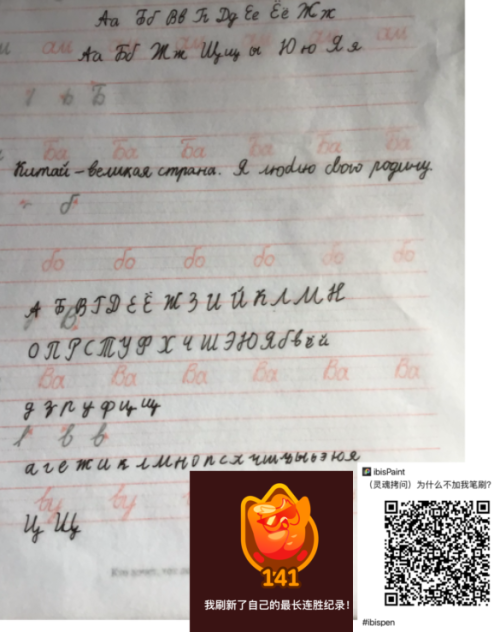 Аа Бб Вв Гг Дд Ее Ёё Жж
ам ам
Аа Бб Жж Щщ ы Юю Яя
Б
Ба Ба Ба Ба Ба Ба
Китай – великая страна. Я люблю свою родину.
б
бо бо бо бо бо бо
А Б В Г Д Е Ё Ж З И Й К Л М Н
О П Р С Т У Ф Х Ч Ш Э Ю Я б в ё й
Ва Ва Ва Ва Ва Ва
д з р у ф ц щ
в в
а г е ж и к л м н о п с х ч ш ъ ы ь э ю я
ву ву
Ц Щ
141
我刷新了自己的最长连胜纪录!
ibisPaint
(灵魂拷问)为什么不加我笔刷?
#ibispen